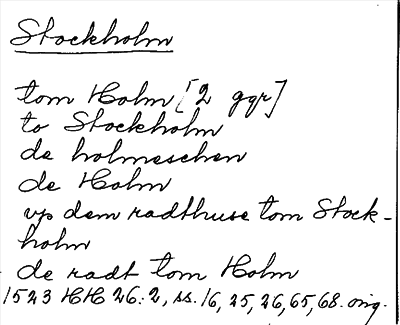 Stockholm
tom Holm [2 ggr]
to Stockholm
de holmeschen
de Holm
vp dem radthuse tom Stock-
holm
de radt tom Holm
1523 HH 26:2, ss. 16, 25, 26, 65, 68. orig.